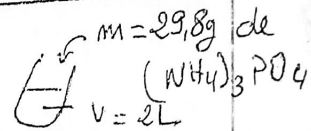 m = 29,8g de
(NH4)3 PO4
V = 2L